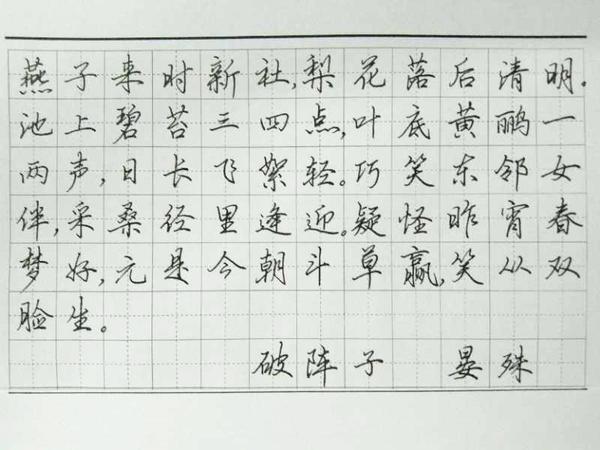 燕子来时新社,梨花落后清明.
池上碧苔三四点,叶底黄鹂一
两声,日长飞絮轻。巧笑东邻女
伴,采桑径里逢迎。疑怪昨宵春
梦好,元是今朝斗草赢,笑从双
脸生。
破阵子 晏殊